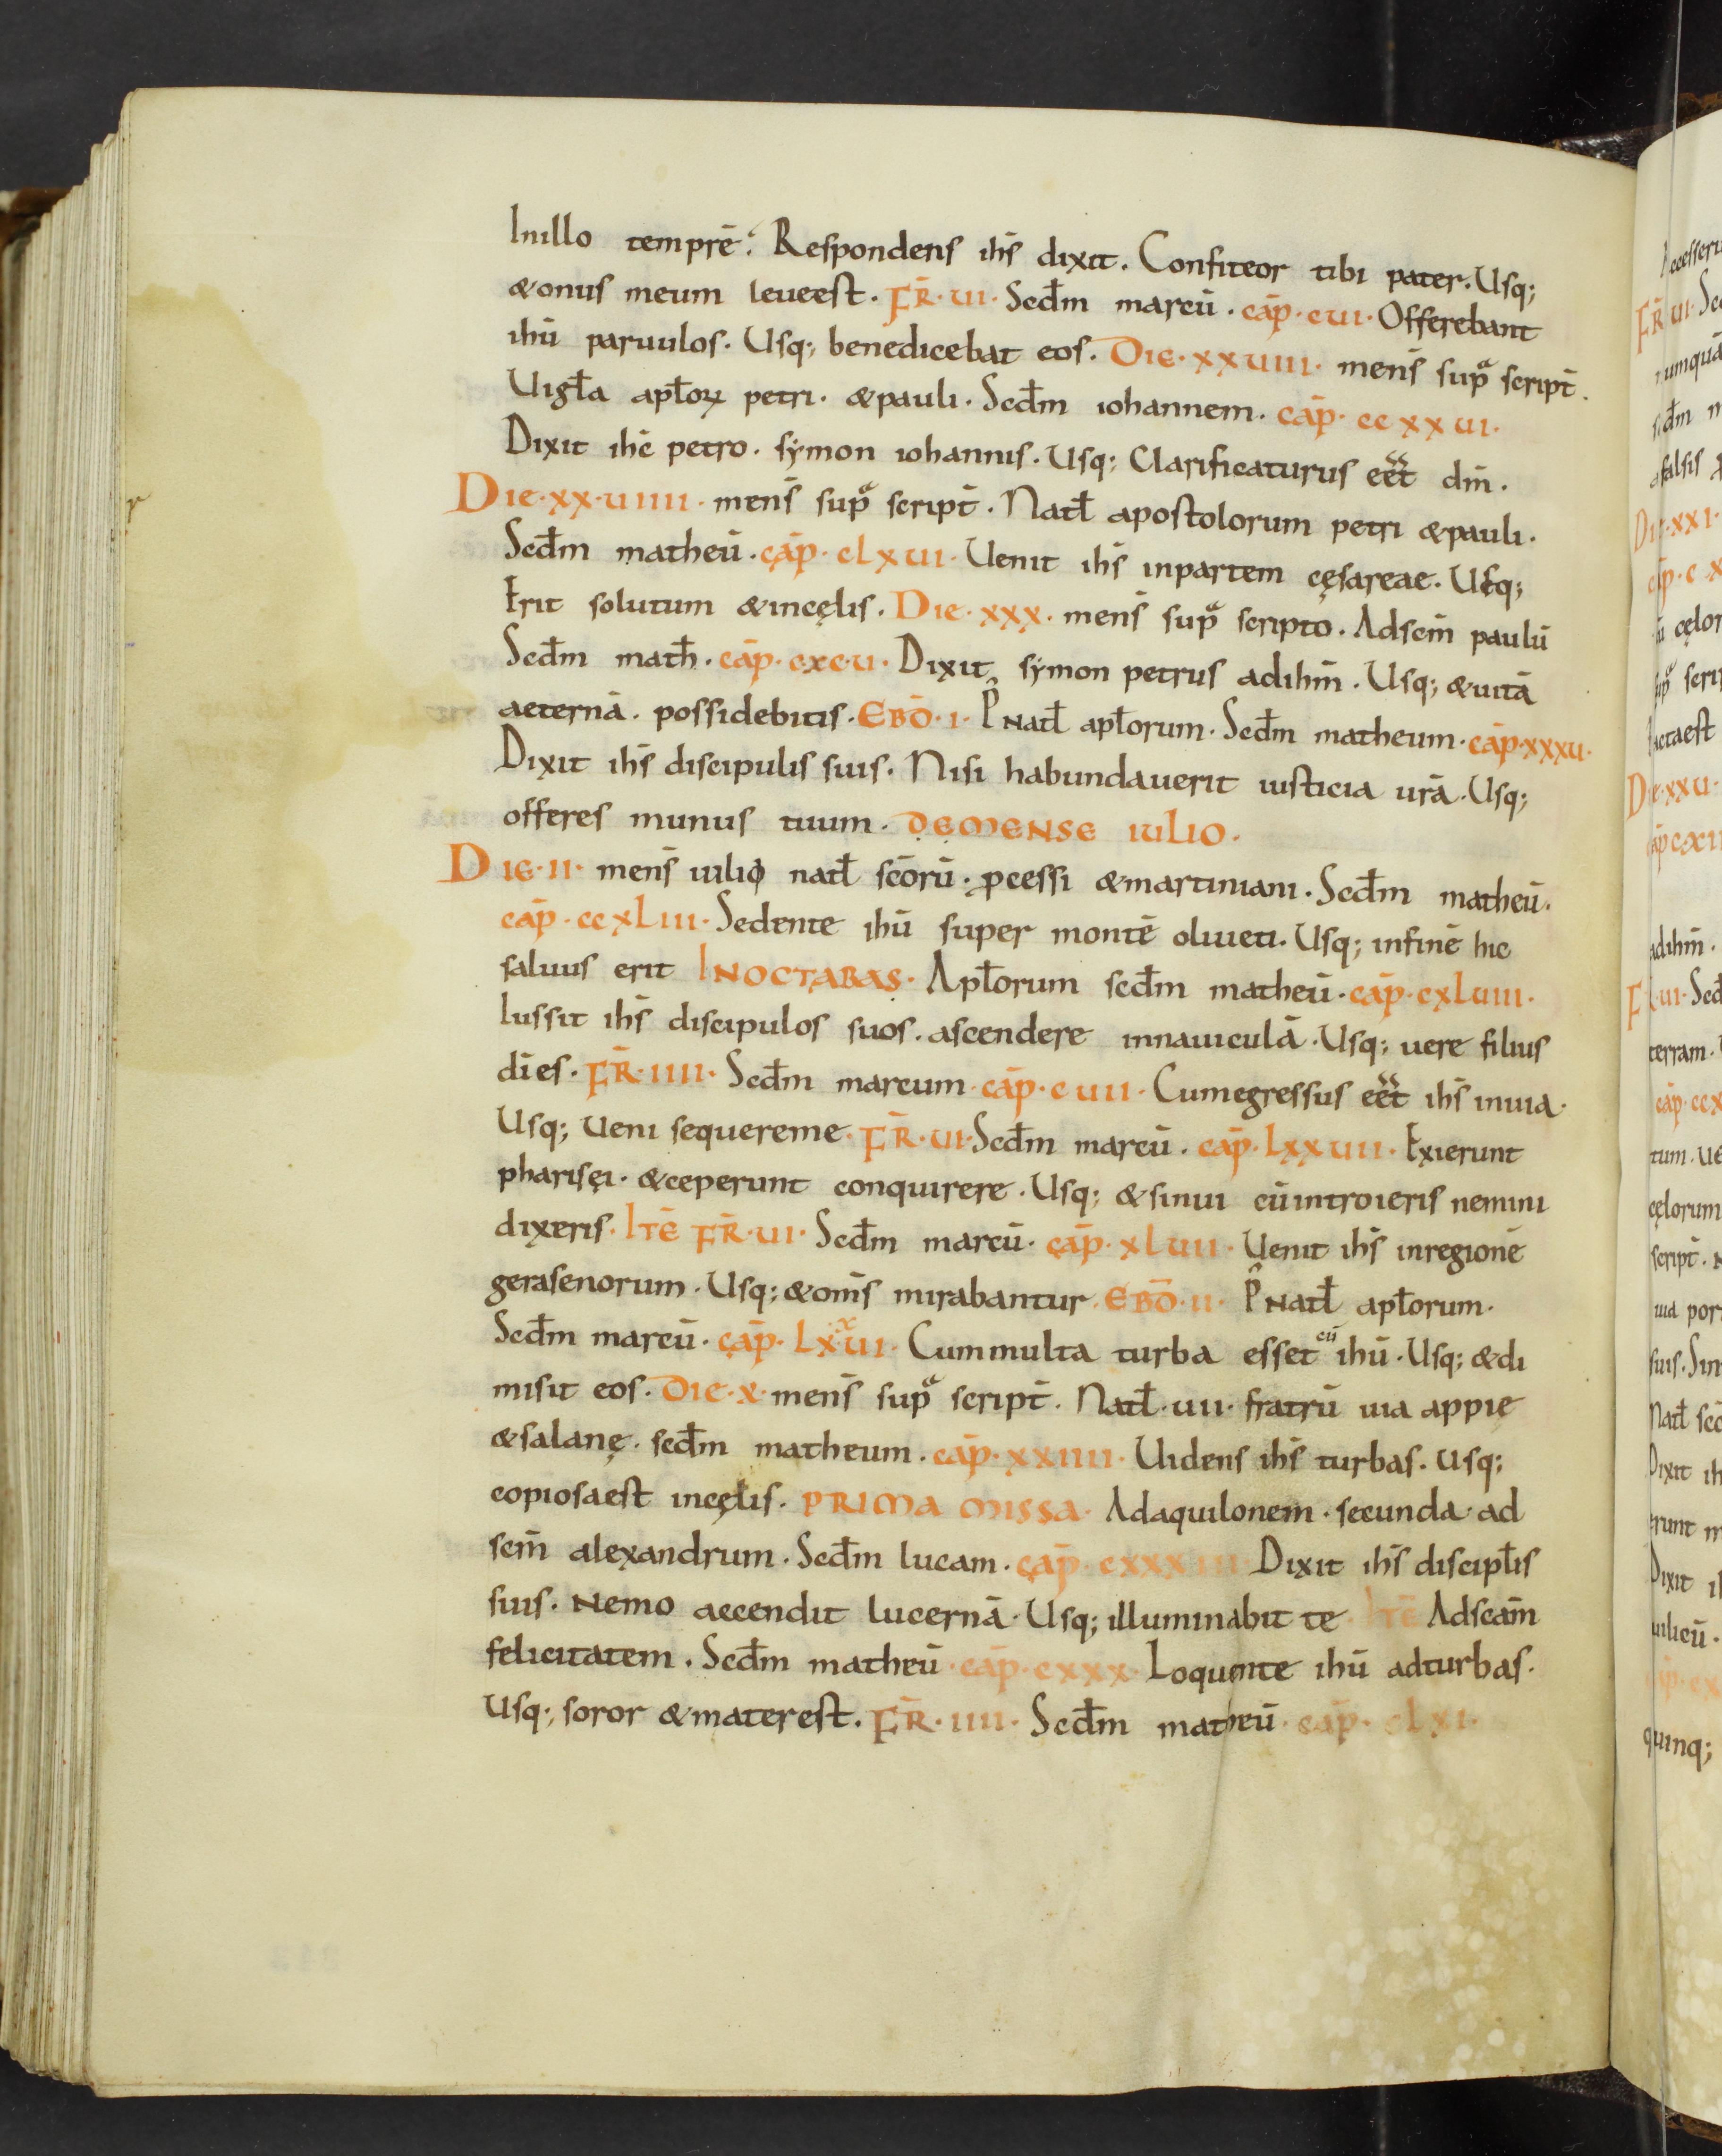 Inillo temprē. Respondens ihs̄ dixit. Confiteor tibi pater. Usq;
&onus meum leueest. FR̄. VI. Scd̄m marcū. cap̄. cvi. Offerebant
ihū paruulos. Usq; benedicebat eos. DIE. XXVIII. mens̄ supͣ script̄.
Uigl̄a apl̄oꝝ petri. &pauli. Scd̄m iohannem. cap̄. cc xx vi.
Dixit ihc̄ petro. symon iohannis. Usq; Clarificaturus eēt dm̄.
DIE. XX. VIIII. mens̄ supͣ script̄. Natl̄ apostolorum petri &pauli.
Scd̄m matheū. cap̄. clxvi. Uenit ihs̄ inpartem cęsareae. Usq;
Erit solutum &incęlis. DIE. XXX. mens̄ supͣ scripto. Adscm̄ paulū
Scd̄m math̄. cap̄. cxcv. Dixit symon petrus adihm̄. Usq; &uitā
aeternā. possidebitis. EBD̄. I. P̄ natl̄ apl̄orum. Scd̄m matheum. cap̄. xxxv.
Dixit ihs̄ discipulis suis. Nisi habundauerit iusticia urā. Usq;
offeres munus tuum. DEMENSE IULIO.
DIE. II. mens̄ iulio natl̄ sc̄orū. ꝓcessi &martiniani. Scd̄m matheū.
cap̄. ccxLiii. Sedente ihū super montē oliueti. Usq; infinē hic
saluus erit INOCTABAS. Apl̄orum scd̄m matheū. cap̄. cxLviii.
Iussit ihs̄ discipulos suos. ascendere innauiculā. Usq; uere filius
dīes. FR̄. IIII. Scd̄m marcum. cap̄. cvii. Cumegressus eēt ihs̄ inuia.
Usq; Ueni sequereme. FR̄. VI. Scd̄m marcū. cap̄. Lxxvii. Exierunt
pharisęi. &ceperunt conquirere. Usq; &sinui cūintroieris nemini
dixeris. ITĒ FR̄. VI. Scd̄m marcū. cap̄. xLvii. Uenit ihs̄ inregionē
gerasenorum. Usq; &oms̄ mirabantur. EBD̄. II. P̄ Natl̄ apl̄orum.
Scd̄m marcū. cap̄. Lxxvi. Cummulta turba esset cū ihū. Usq; &di
misit eos. DIE. X. mens̄ supͣ script̄. Natl̄. vii. fratrū uia appię
&salanę. scd̄m matheum. cap̄. xxiiii. Uidens ihs̄ turbas. Usq;
copiosaest incęlis. PRIMA MISSA. Adaquilonem. secunda. ad
scm̄ alexandrum. Scd̄m lucam. cap̄. cxxxiii Dixit ihs̄ discipl̄is
suis. Nemo accendit lucernā. Usq; illuminabit te. ITĒ Adscām
felicitatem. Scd̄m matheū. cap̄. cxxx. Loquente ihū adturbas.
Usq; soror &materest. FR̄. IIII. Scd̄m matheū. cap̄. cLxi.